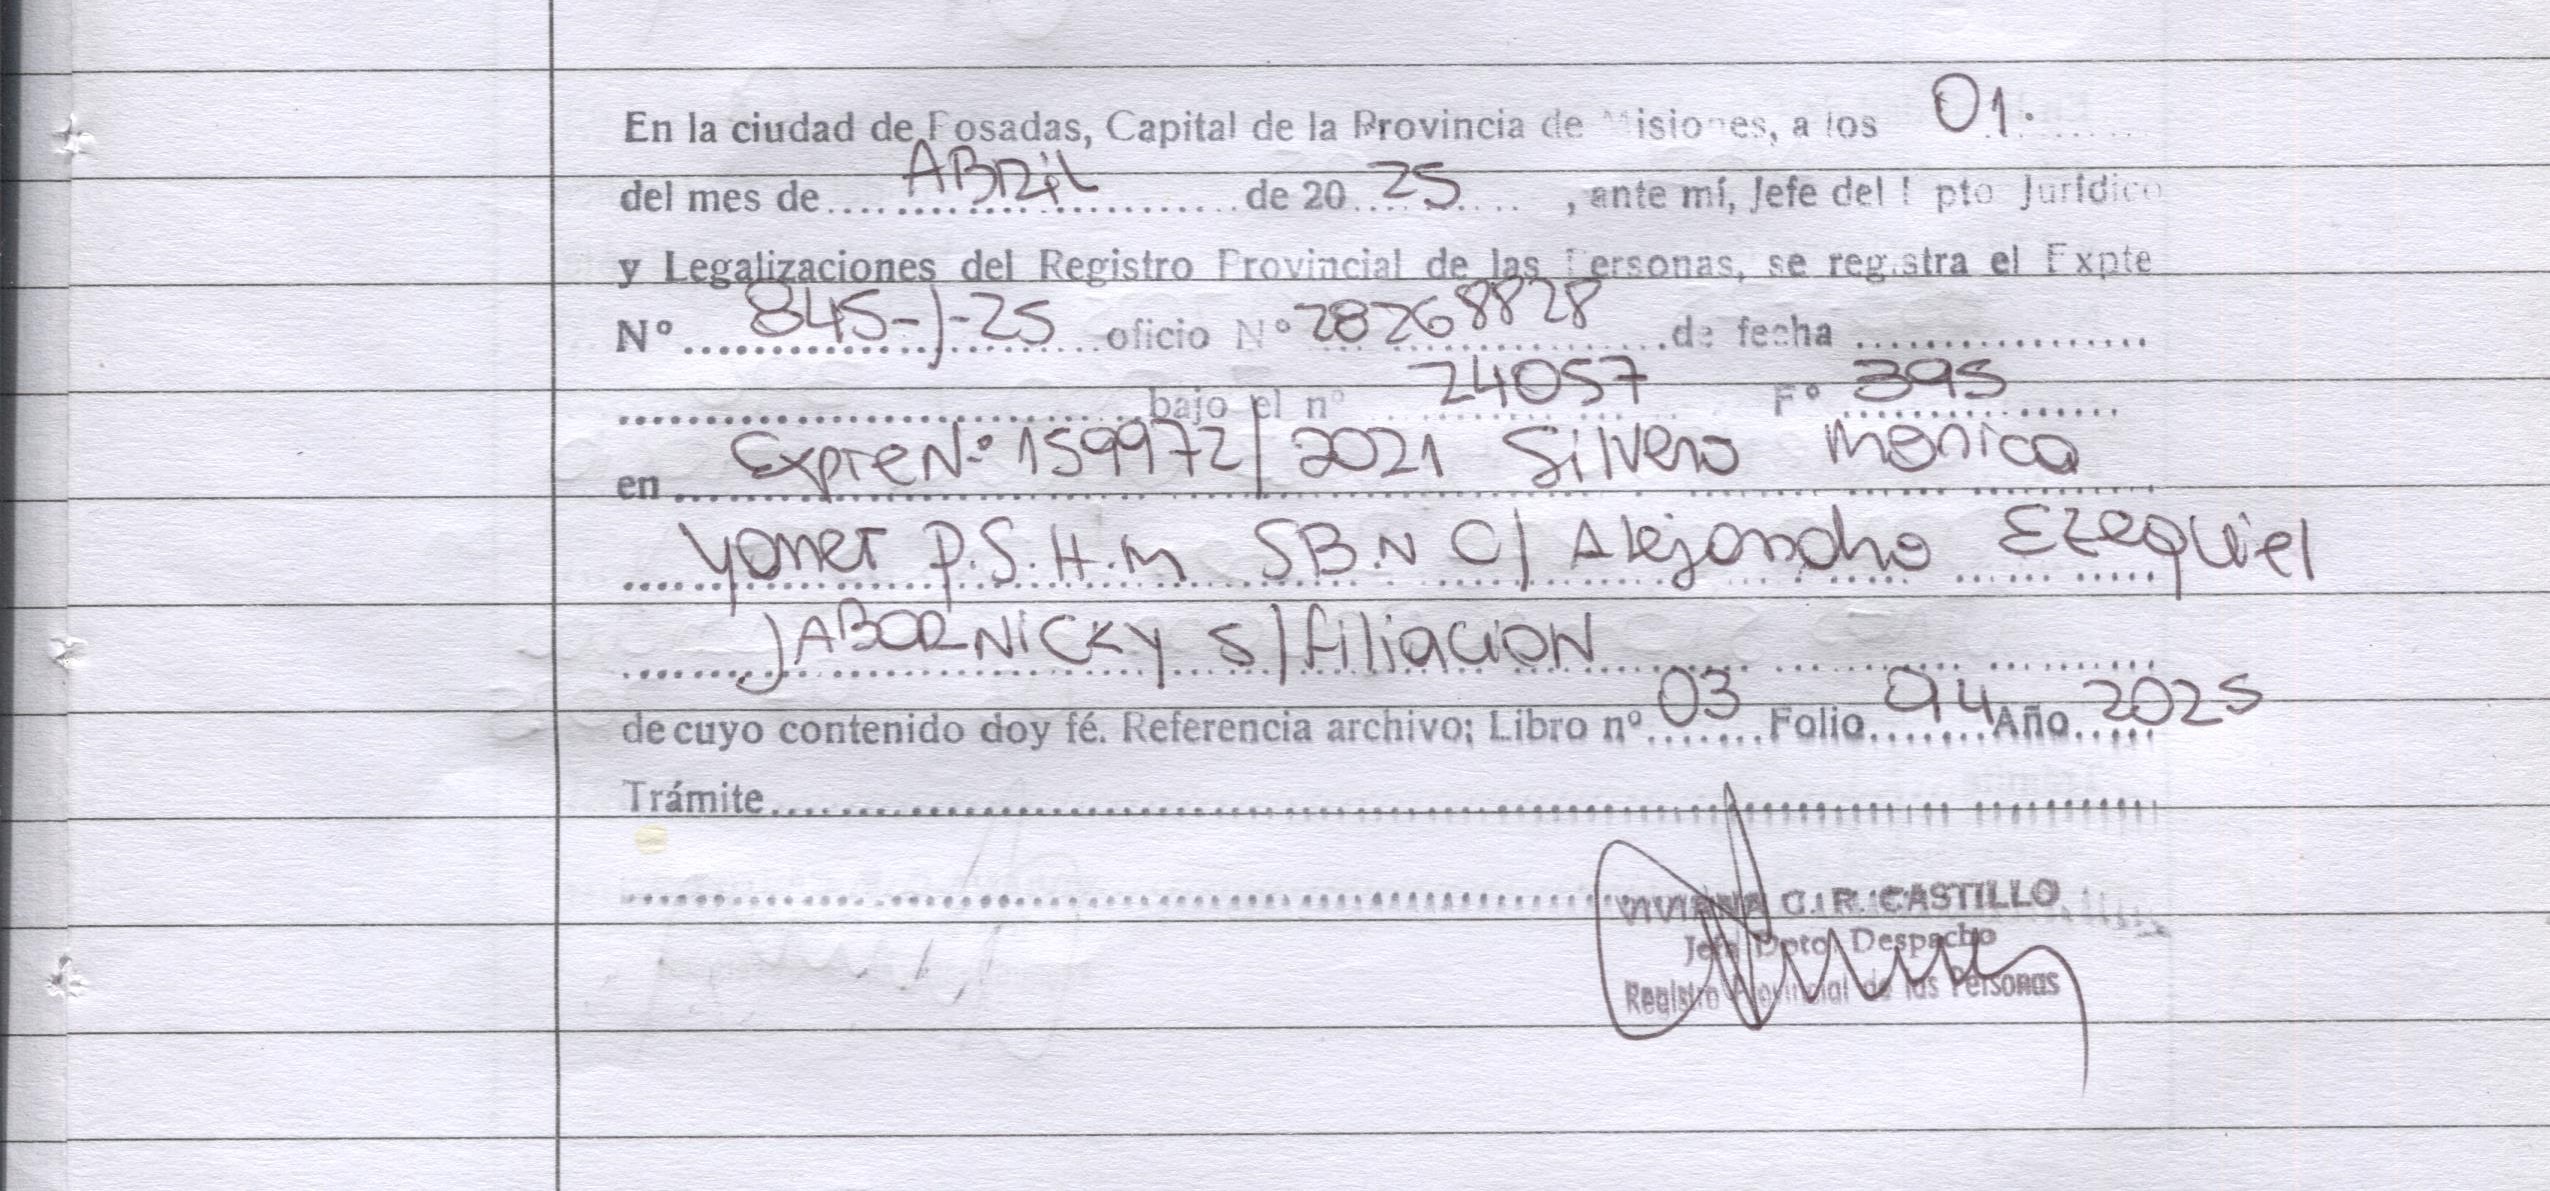 En la ciudad de Posadas, Capital de la Provincia de Misiones, a los 01.
del mes de ABRIL de 20 25, ante mí, Jefe del Dpto Jurídico
y Legalizaciones del Registro Provincial de las Personas, se registra el Expte
Nº 845-J-25 oficio Nº 28268828 de fecha
bajo el nº 24057 Fº 395
en Expte Nº 159972/2021 Silvero Monica
Yanet P.S.H.M SB.N C/ Alejandro Ezequiel
JABORNICKY S/ filiacion
de cuyo contenido doy fé. Referencia archivo; Libro nº 03 Folio 94 Año 2025
Trámite
VIVIANA C. R. CASTILLO
Jefa Dpto Despacho
Registro Provincial de las Personas